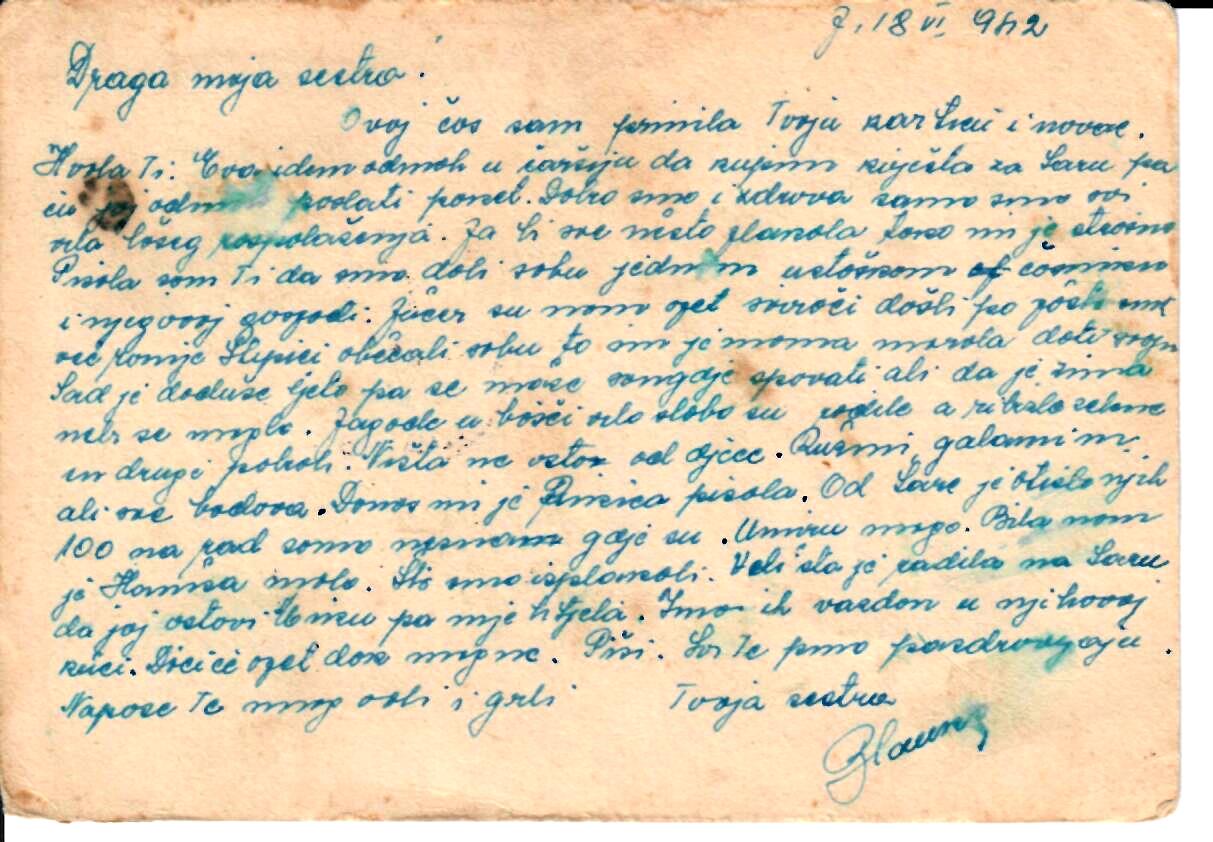 Z. 18 VI 942
Draga moja sestro!
Ovoj čas sam primila Tvoju karticu i novac.
Hvala Ti. Evo idem odmah u čaršiju da kupim cvijeća za Saru pa
ću odm poslati ponel. Dobro smo i zdrava samo smo svi
vrlo lošeg raspoloženja. Ja bi sve nešto plakala tako mi je strašno
Pisala sam Ti da smo dali sobu jednom ustaškom časniku
i njegovoj gospodi. Jučer su nam opet svirači došli po pošto smo
već ranije Slijepici obećali sobu to im je mama morala dati svoju
Sad je doduše ljeto pa se može svugdje spavati ali da je zima
nebi se moglo. Jagode u bašči vrlo slabo su rodile a ribizle zelene
su drugi pobrali. Ništa ne osta od djece. Ružim i galamim
ali sve badava. Danas mi je Binica pisala. Od Sare je otišlo njih
100 na rad samo neznam gdje su. Umiru mnogo. Bila nam
je Hamša malo. Sve smo isplakali. Veli šta je radila na Saru
da joj ostavi Binku pa nije htjela. Imao ih vazdan u njihovoj
kući. Doći će opet dok mogne. Piši. Svi Te puno pozdravljaju.
Napose Te mnogo voli i grli Tvoja sestra
Blanka